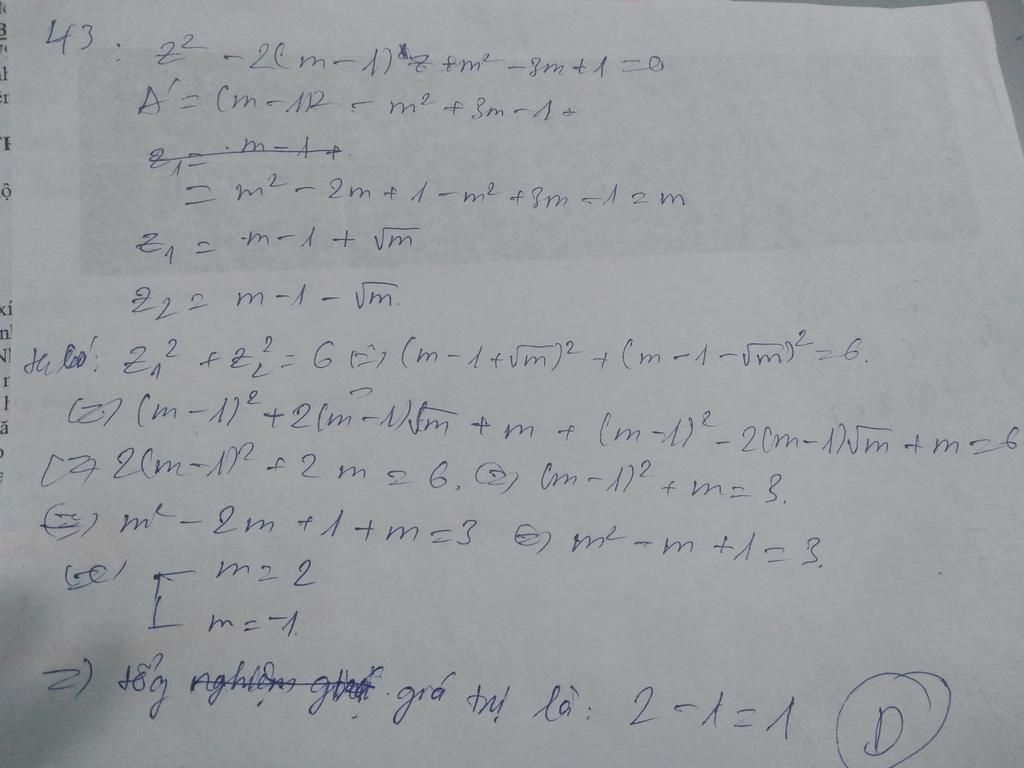 43: z² - 2(m-1)z + m² - 3m + 1 = 0
Δ' = (m-1)² - m² + 3m - 1 =
z₁ = m - 1 +
= m² - 2m + 1 - m² + 3m - 1 = m
z₁ = m - 1 + √m
z₂ = m - 1 - √m.
z₁² + z₂² = 6 ⇔ (m - 1 + √m)² + (m - 1 - √m)² = 6.
⇔ (m-1)² + 2(m-1)√m + m + (m-1)² - 2(m-1)√m + m = 6
⇔ 2(m-1)² + 2m = 6. ⇔ (m-1)² + m = 3.
⇔ m² - 2m + 1 + m = 3 ⇔ m² - m + 1 = 3.
⇔ [ m = 2
m = -1.
=> tổng giá trị là: 2 - 1 = 1 D